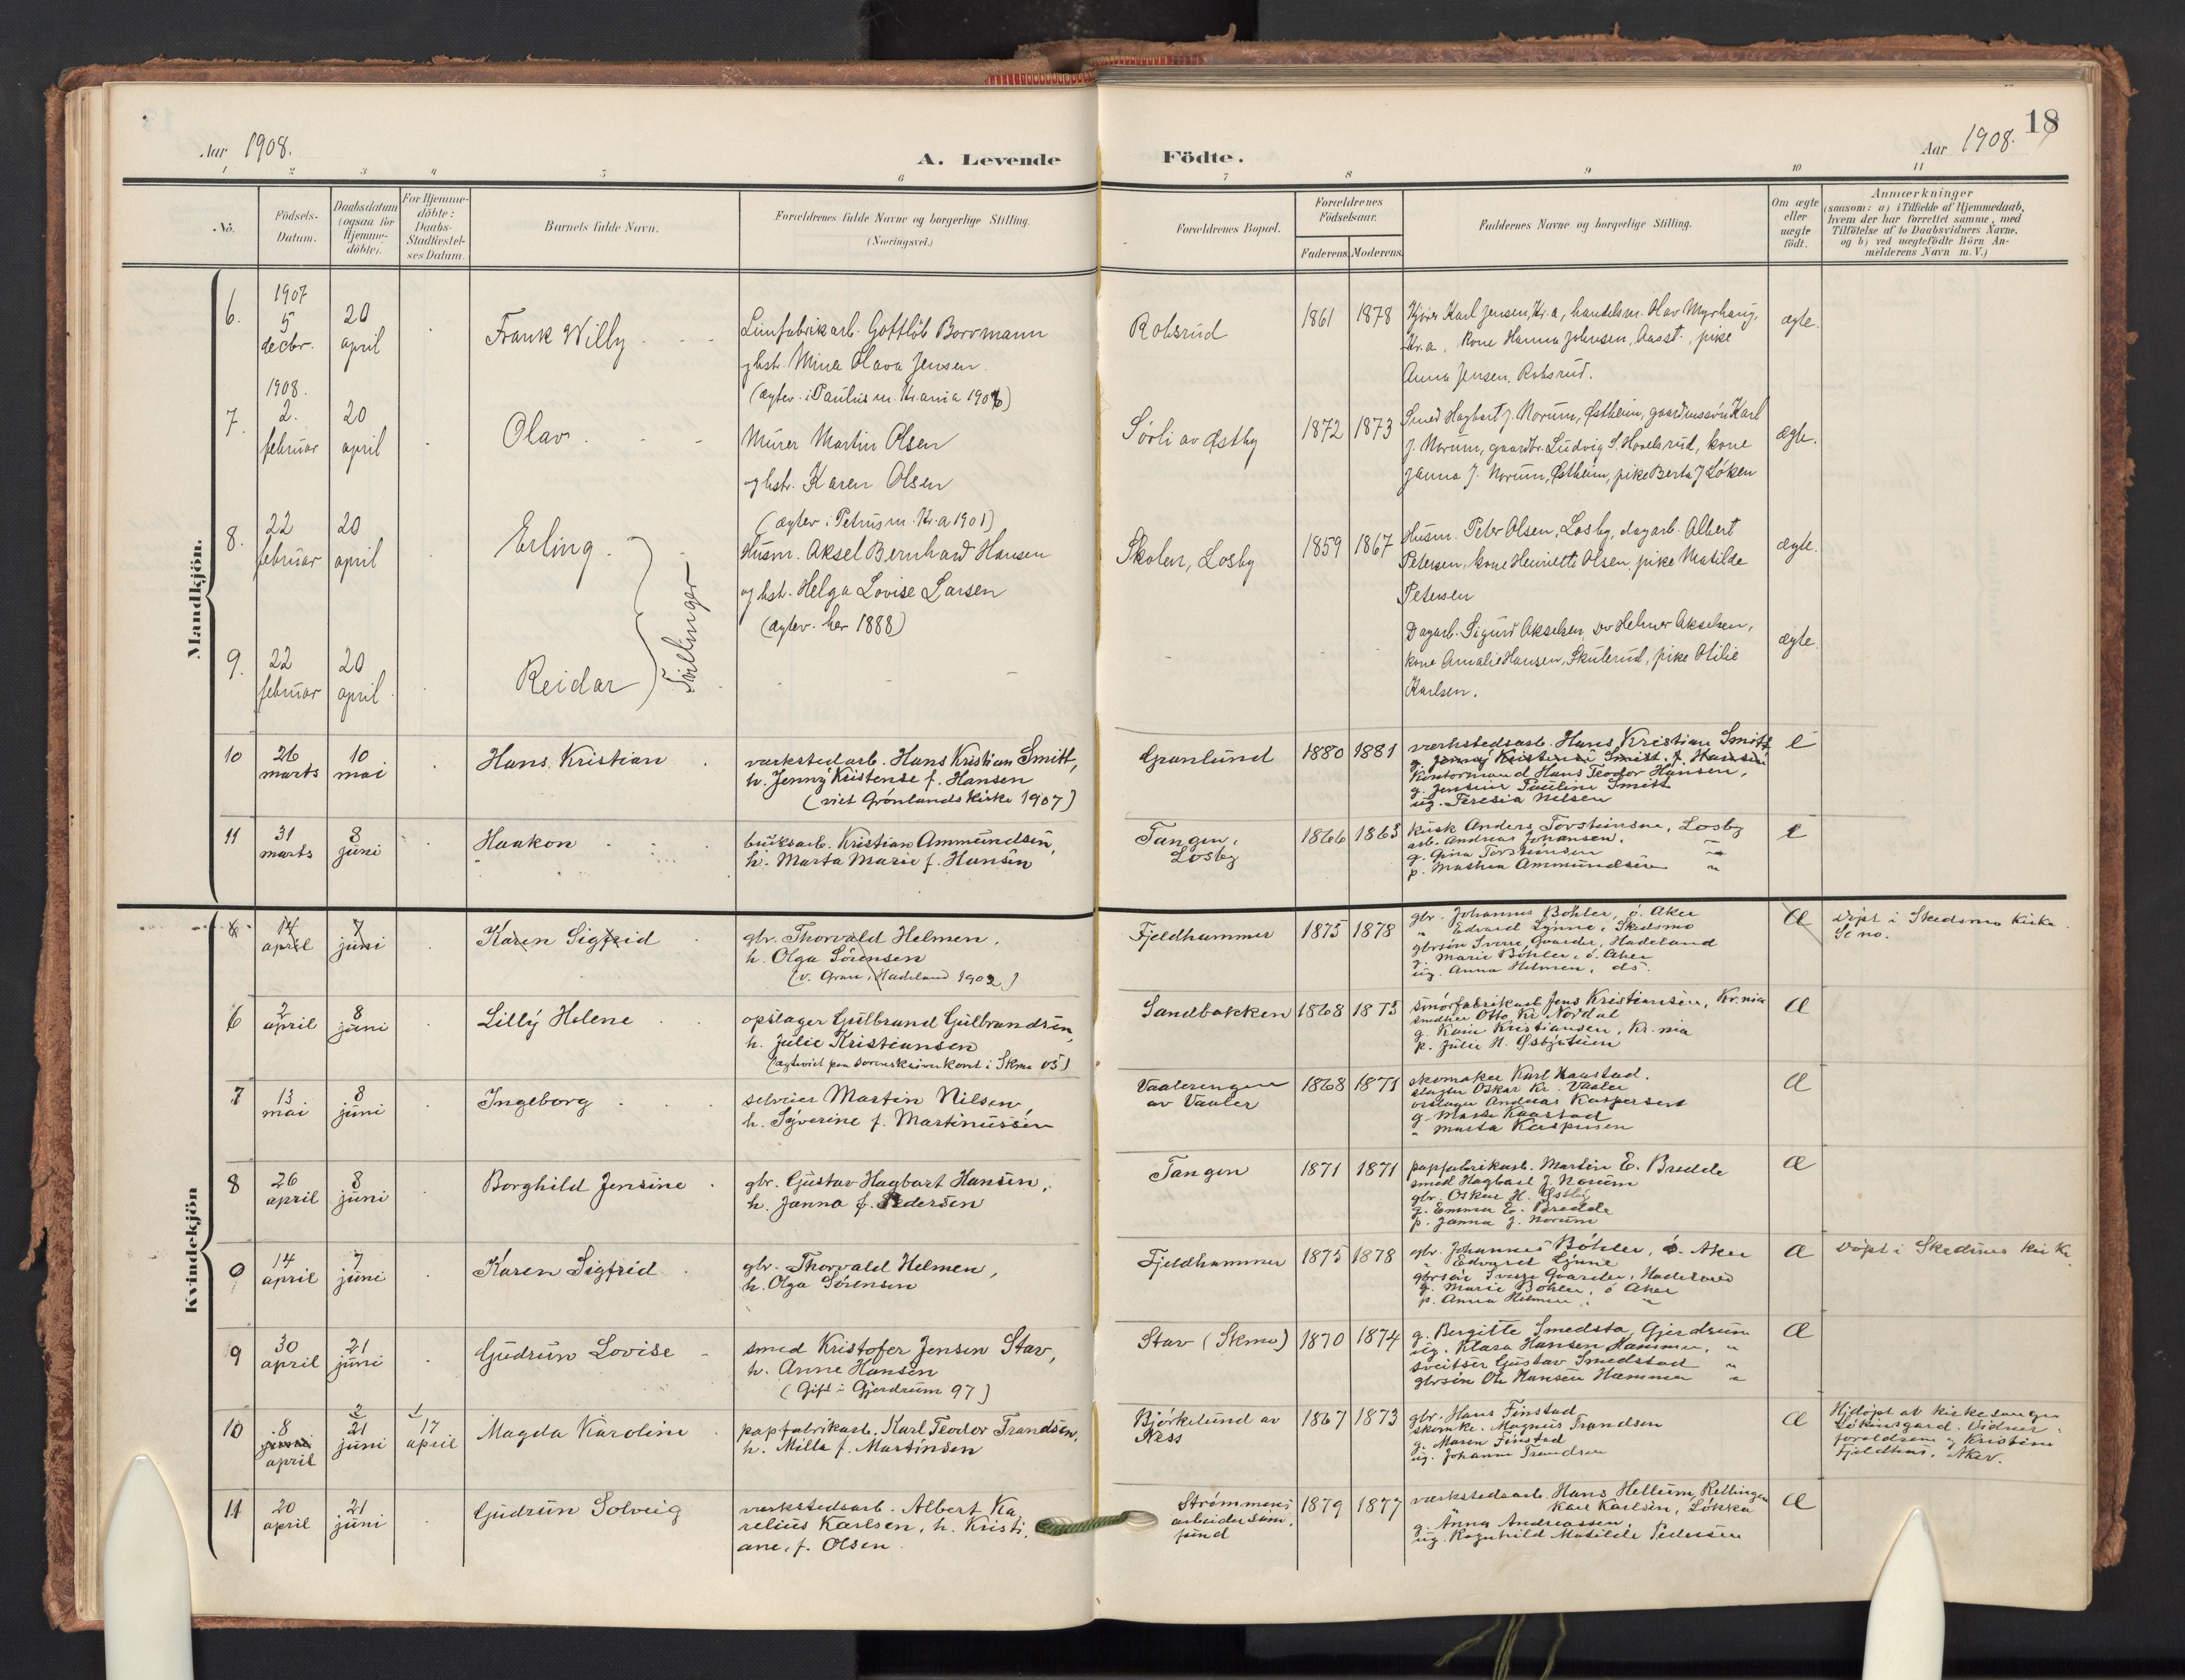 Aar 1908.
A. Levende
Födte.
Aar 1908.
18
1 2 3 4 5 6 7 8 9 10 11
No.
Födsels-
Datum.
Daabsdatum
(ogsaa for
Hjemme-
döbte).
For Hjemme-
döbte:
Daabs-
Stadfæstel-
ses Datum.
Barnets fulde Navn.
Forældrenes fulde Navne og borgerlige Stilling.
(Næringsvei.)
Forældrenes Bopæl.
Forældrenes
Födselsaar.
Faderens. Moderens.
Faddernes Navne og borgerlige Stilling.
Om ægte
eller
uægte
födt.
Anmærkninger
(saasom: a) i Tilfælde af Hjemmedaab,
hvem der har forrettet samme, med
Tilföielse af to Daabsvidners Navne,
og b) ved uægtefödte Börn An-
melderens Navn m. V.)
Mandkjön.
6.
1907
5
decbr.
20
april
Frank Willy
Limfabrikarb. Gottlob Borrmann
og hstr. Mina Olava Jensen
(ægtev. i Paulus m. Kr.ania 1906)
Robsrud
1861 1878
Karl Jensen, Kr.a, handelsm. Olav Myrhaug,
Kr.a, kone Hanna Johnsen, Aast., pike
Anna Jensen, Robsrud.
ægte.
7.
1908.
2.
februar
20
april
Olav
Murer Martin Olsen
og hstr. Karen Olsen
(ægtev. i Petrus m. Kr.a 1901)
Sørli av Østby
1872 1873
Smed Hagbart J. Norum, Østheim, gaardmssøn Karl
J. Norum, gaardbr. Ludvig S. Hovelsrud, kone
Janna J. Norum, Østheim, pike Berta J Løken
ægte.
8.
22
februar
20
april
Erling
Husm. Aksel Bernhard Hansen
og hst. Helga Lovise Larsen
(ægtev. her 1888)
Skolen, Losby
1859 1867
Husm. Peter Olsen, Losby, dagarb. Albert
Petersen, kone Henriette Olsen, pike Matilde
Petersen
ægte.
Tvillinger
9.
22
februar
20
april
Reidar
Dagarb. Sigurd Akselsen, do Helmer Akselsen,
kone Amalie Hansen, Skulerud, pike Otilie
Karlsen.
ægte.
10
26
marts
10
mai
Hans Kristian
værkstedarb. Hans Kristian Smitt,
h. Jenny Kristense f. Hansen
(viet Grönlands Kirke 1907)
Granlund
1880 1881
værkstedsarb. Hans Kristian Smitt
g. Jenny Kristense Smitt f. Hansen
Kontormand Hans Teodor Hansen,
g. Jensine Pauline Smitt
ug. Teresia Nilsen
11
31
marts
8
juni
Haakon
bruksarb. Kristian Ammundsen,
h. Marta Marie f. Hansen
Tangen,
Losby
1866 1863
Kusk Anders Torsteinsen, Losby
arb. Andreas Johansen,
g. Gina Torsteinsen
p. Mathea Ammundsen "
Kvindekjön
6
14
april
7
juni
Karen Sigfrid
gbr. Thorvald Helmen,
h. Olga Sörensen
(v. Gran, Hadeland 1902)
Fjeldhammer
1875 1878
gbr. Johannes Böhler, ö. Aker
" Edvard Lynne, Skedsmo
gbrsön Sverre Gvarder, Hadeland
g. Marie Böhler, ö. Aker
ug. Anna Helmen, do.
Æ
Döpt i Skedsmo Kirke
6
2
april
8
juni
Lilly Helene
opsitger Gulbrand Gulbrandsen,
h. Julie Kristiansen
(ægteviet paa sorenskriverkont i Skmo 05)
Sandbakken
1868 1875
smörfabrikarb Jens Kristiansen, Kr.nia
snedker Otto Kr. Nordal
g. Kaia Kristiansen, Kr.nia
p. Julie H. Østbjsteien
Æ
7
13
mai
8
juni
Ingeborg
selveier Martin Nilsen,
h. Syverine f. Martinussen
Vaalerengen
av Vaaler
1868 1871
skomaker Karl Kaastad.
slagter Oskar Kr. Vaaler
Andreas Kaspersen
g. Marte Kaastad
" Marta Kaspersen
Æ
8
26
april
8
juni
Borghild Jensine
gbr. Gustav Hagbart Hansen,
h. Janna f. Pedersen
Tangen
1871 1871
papfabrikarb. Martin E. Bredde
smed Hagbart J Norum
gbr. Oskar H. Østby
g. Emma E. Bredde
p. Janna J. Norum
Æ
9
14
april
7
juni
Karen Sigfrid
gbr. Thorvald Helmen,
h. Olga Sörensen
Fjeldhammer
1875 1878
gbr. Johannes Böhler, ö. Aker
" Edvard Lynne
gbrsön Sverre Gvarder, Hadeland
g. Marie Böhler, ö Aker
p. Anna Helmen, "
Æ
Döpt i Skedsmo kirke
9
30
april
21
juni
Gudrun Lovise
smed Kristofer Jensen Stav,
h. Anne Hansen
(Gift i Gjerdrum 97)
Stav (Skmo)
1870 1874
g. Bergitte Smedsta, Gjerdrum
ug. Klara Hansen Hammer, "
sveitser Gustav Smedstad "
gbrsön Ole Hansen Hammer "
Æ
10
8
april
2
21
juni
1
17
april
Magda Karoline
papfabrikarb. Karl Teodor Trandsen,
h. Milla f. Martinsen
Björkelund av
Ness
1867 1873
gbr. Hans Finstad
skomkr. Magnus Trandsen
g. Maren Finstad
ug. Johanne Trandsen
Æ
Hjdöpt at kirkesanger
Lökensgard. Vidner:
foreldrene og Kristine
Fjeldhus, Aker.
11
20
april
21
juni
Gudrun Solveig
værkstedsarb. Albert Ka-
relius Karlsen, h. Kristi-
ane, f. Olsen
Strömmens
arbeidersam-
fund
1879 1877
værkstedsarb. Hans Hellum, Rellingen
" Karl Karlsen, Løkka
g. Anna Andreassen,
ug. Ragnhild Matilde Pedersen
Æ